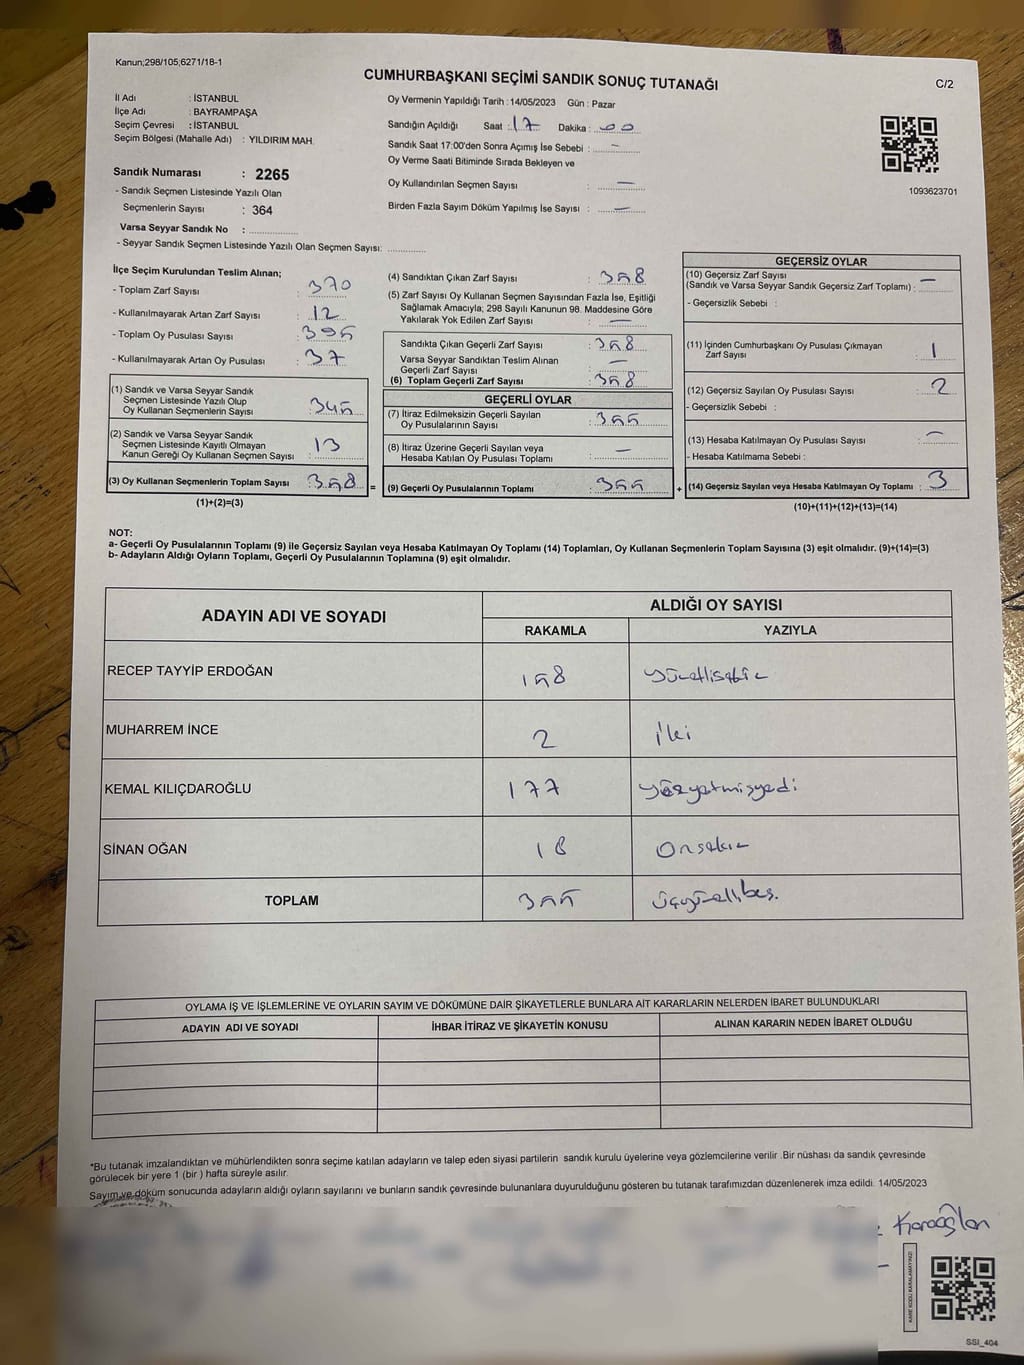 Kanun;298/105;6271/18-1
CUMHURBAŞKANI SEÇİMİ SANDIK SONUÇ TUTANAĞI
C/2
İl Adı : İSTANBUL
İlçe Adı : BAYRAMPAŞA
Seçim Çevresi : İSTANBUL
Seçim Bölgesi (Mahalle Adı) : YILDIRIM MAH.
Sandık Numarası : 2265
- Sandık Seçmen Listesinde Yazılı Olan
Seçmenlerin Sayısı : 364
Varsa Seyyar Sandık No : ...............
- Seyyar Sandık Seçmen Listesinde Yazılı Olan Seçmen Sayısı: ............
Oy Vermenin Yapıldığı Tarih : 14/05/2023 Gün : Pazar
Sandığın Açıldığı Saat : 17 Dakika : 00
Sandık Saat 17:00'den Sonra Açımış İse Sebebi : -
Oy Verme Saati Bitiminde Sırada Bekleyen ve
Oy Kullandırılan Seçmen Sayısı : -
Birden Fazla Sayım Döküm Yapılmış İse Sayısı : -
1093623701
İlçe Seçim Kurulundan Teslim Alınan;
- Toplam Zarf Sayısı : 370
- Kullanılmayarak Artan Zarf Sayısı : 12
- Toplam Oy Pusulası Sayısı : 395
- Kullanılmayarak Artan Oy Pusulası : 37
(1) Sandık ve Varsa Seyyar Sandık
Seçmen Listesinde Yazılı Olup
Oy Kullanan Seçmenlerin Sayısı : 345
(2) Sandık ve Varsa Seyyar Sandık
Seçmen Listesinde Kayıtlı Olmayan
Kanun Gereği Oy Kullanan Seçmen Sayısı : 13
(3) Oy Kullanan Seçmenlerin Toplam Sayısı : 358 =
(1)+(2)=(3)
(4) Sandıktan Çıkan Zarf Sayısı : 358
(5) Zarf Sayısı Oy Kullanan Seçmen Sayısından Fazla İse, Eşitliği
Sağlamak Amacıyla; 298 Sayılı Kanunun 98. Maddesine Göre
Yakılarak Yok Edilen Zarf Sayısı : -
Sandıkta Çıkan Geçerli Zarf Sayısı : 358
Varsa Seyyar Sandıktan Teslim Alınan
Geçerli Zarf Sayısı : -
(6) Toplam Geçerli Zarf Sayısı : 358
GEÇERLİ OYLAR
(7) İtiraz Edilmeksizin Geçerli Sayılan
Oy Pusulalarının Sayısı : 355
(8) İtiraz Üzerine Geçerli Sayılan veya
Hesaba Katılan Oy Pusulası Toplamı : -
(9) Geçerli Oy Pusulalarının Toplamı : 355 +
GEÇERSİZ OYLAR
(10) Geçersiz Zarf Sayısı
(Sandık ve Varsa Seyyar Sandık Geçersiz Zarf Toplamı) : -
- Geçersizlik Sebebi :
(11) İçinden Cumhurbaşkanı Oy Pusulası Çıkmayan
Zarf Sayısı : 1
(12) Geçersiz Sayılan Oy Pusulası Sayısı : 2
- Geçersizlik Sebebi :
(13) Hesaba Katılmayan Oy Pusulası Sayısı : -
- Hesaba Katılmama Sebebi :
(14) Geçersiz Sayılan veya Hesaba Katılmayan Oy Toplamı : 3
(10)+(11)+(12)+(13)=(14)
NOT:
a- Geçerli Oy Pusulalarının Toplamı (9) ile Geçersiz Sayılan veya Hesaba Katılmayan Oy Toplamı (14) Toplamları, Oy Kullanan Seçmenlerin Toplam Sayısına (3) eşit olmalıdır. (9)+(14)=(3)
b- Adayların Aldığı Oyların Toplamı, Geçerli Oy Pusulalarının Toplamına (9) eşit olmalıdır.
ADAYIN ADI VE SOYADI
ALDIĞI OY SAYISI
RAKAMLA YAZIYLA
RECEP TAYYİP ERDOĞAN 158 yüzellisekiz
MUHARREM İNCE 2 iki
KEMAL KILIÇDAROĞLU 177 yüzyetmişyedi
SİNAN OĞAN 18 Onsekiz
TOPLAM 355 üçyüzellibeş.
OYLAMA İŞ VE İŞLEMLERİNE VE OYLARIN SAYIM VE DÖKÜMÜNE DAİR ŞİKAYETLERLE BUNLARA AİT KARARLARIN NELERDEN İBARET BULUNDUKLARI
ADAYIN ADI VE SOYADI İHBAR İTİRAZ VE ŞİKAYETİN KONUSU ALINAN KARARIN NEDEN İBARET OLDUĞU
*Bu tutanak imzalandıktan ve mühürlendikten sonra seçime katılan adayların ve talep eden siyasi partilerin sandık kurulu üyelerine veya gözlemcilerine verilir .Bir nüshası da sandık çevresinde
görülecek bir yere 1 (bir ) hafta süreyle asılır.
Sayım ve döküm sonucunda adayların aldığı oyların sayılarını ve bunların sandık çevresinde bulunanlara duyurulduğunu gösteren bu tutanak tarafımızdan düzenlenerek imza edildi. 14/05/2023
Karaağlan
KARE KODU KARALAMAYINIZ!
SSI_404